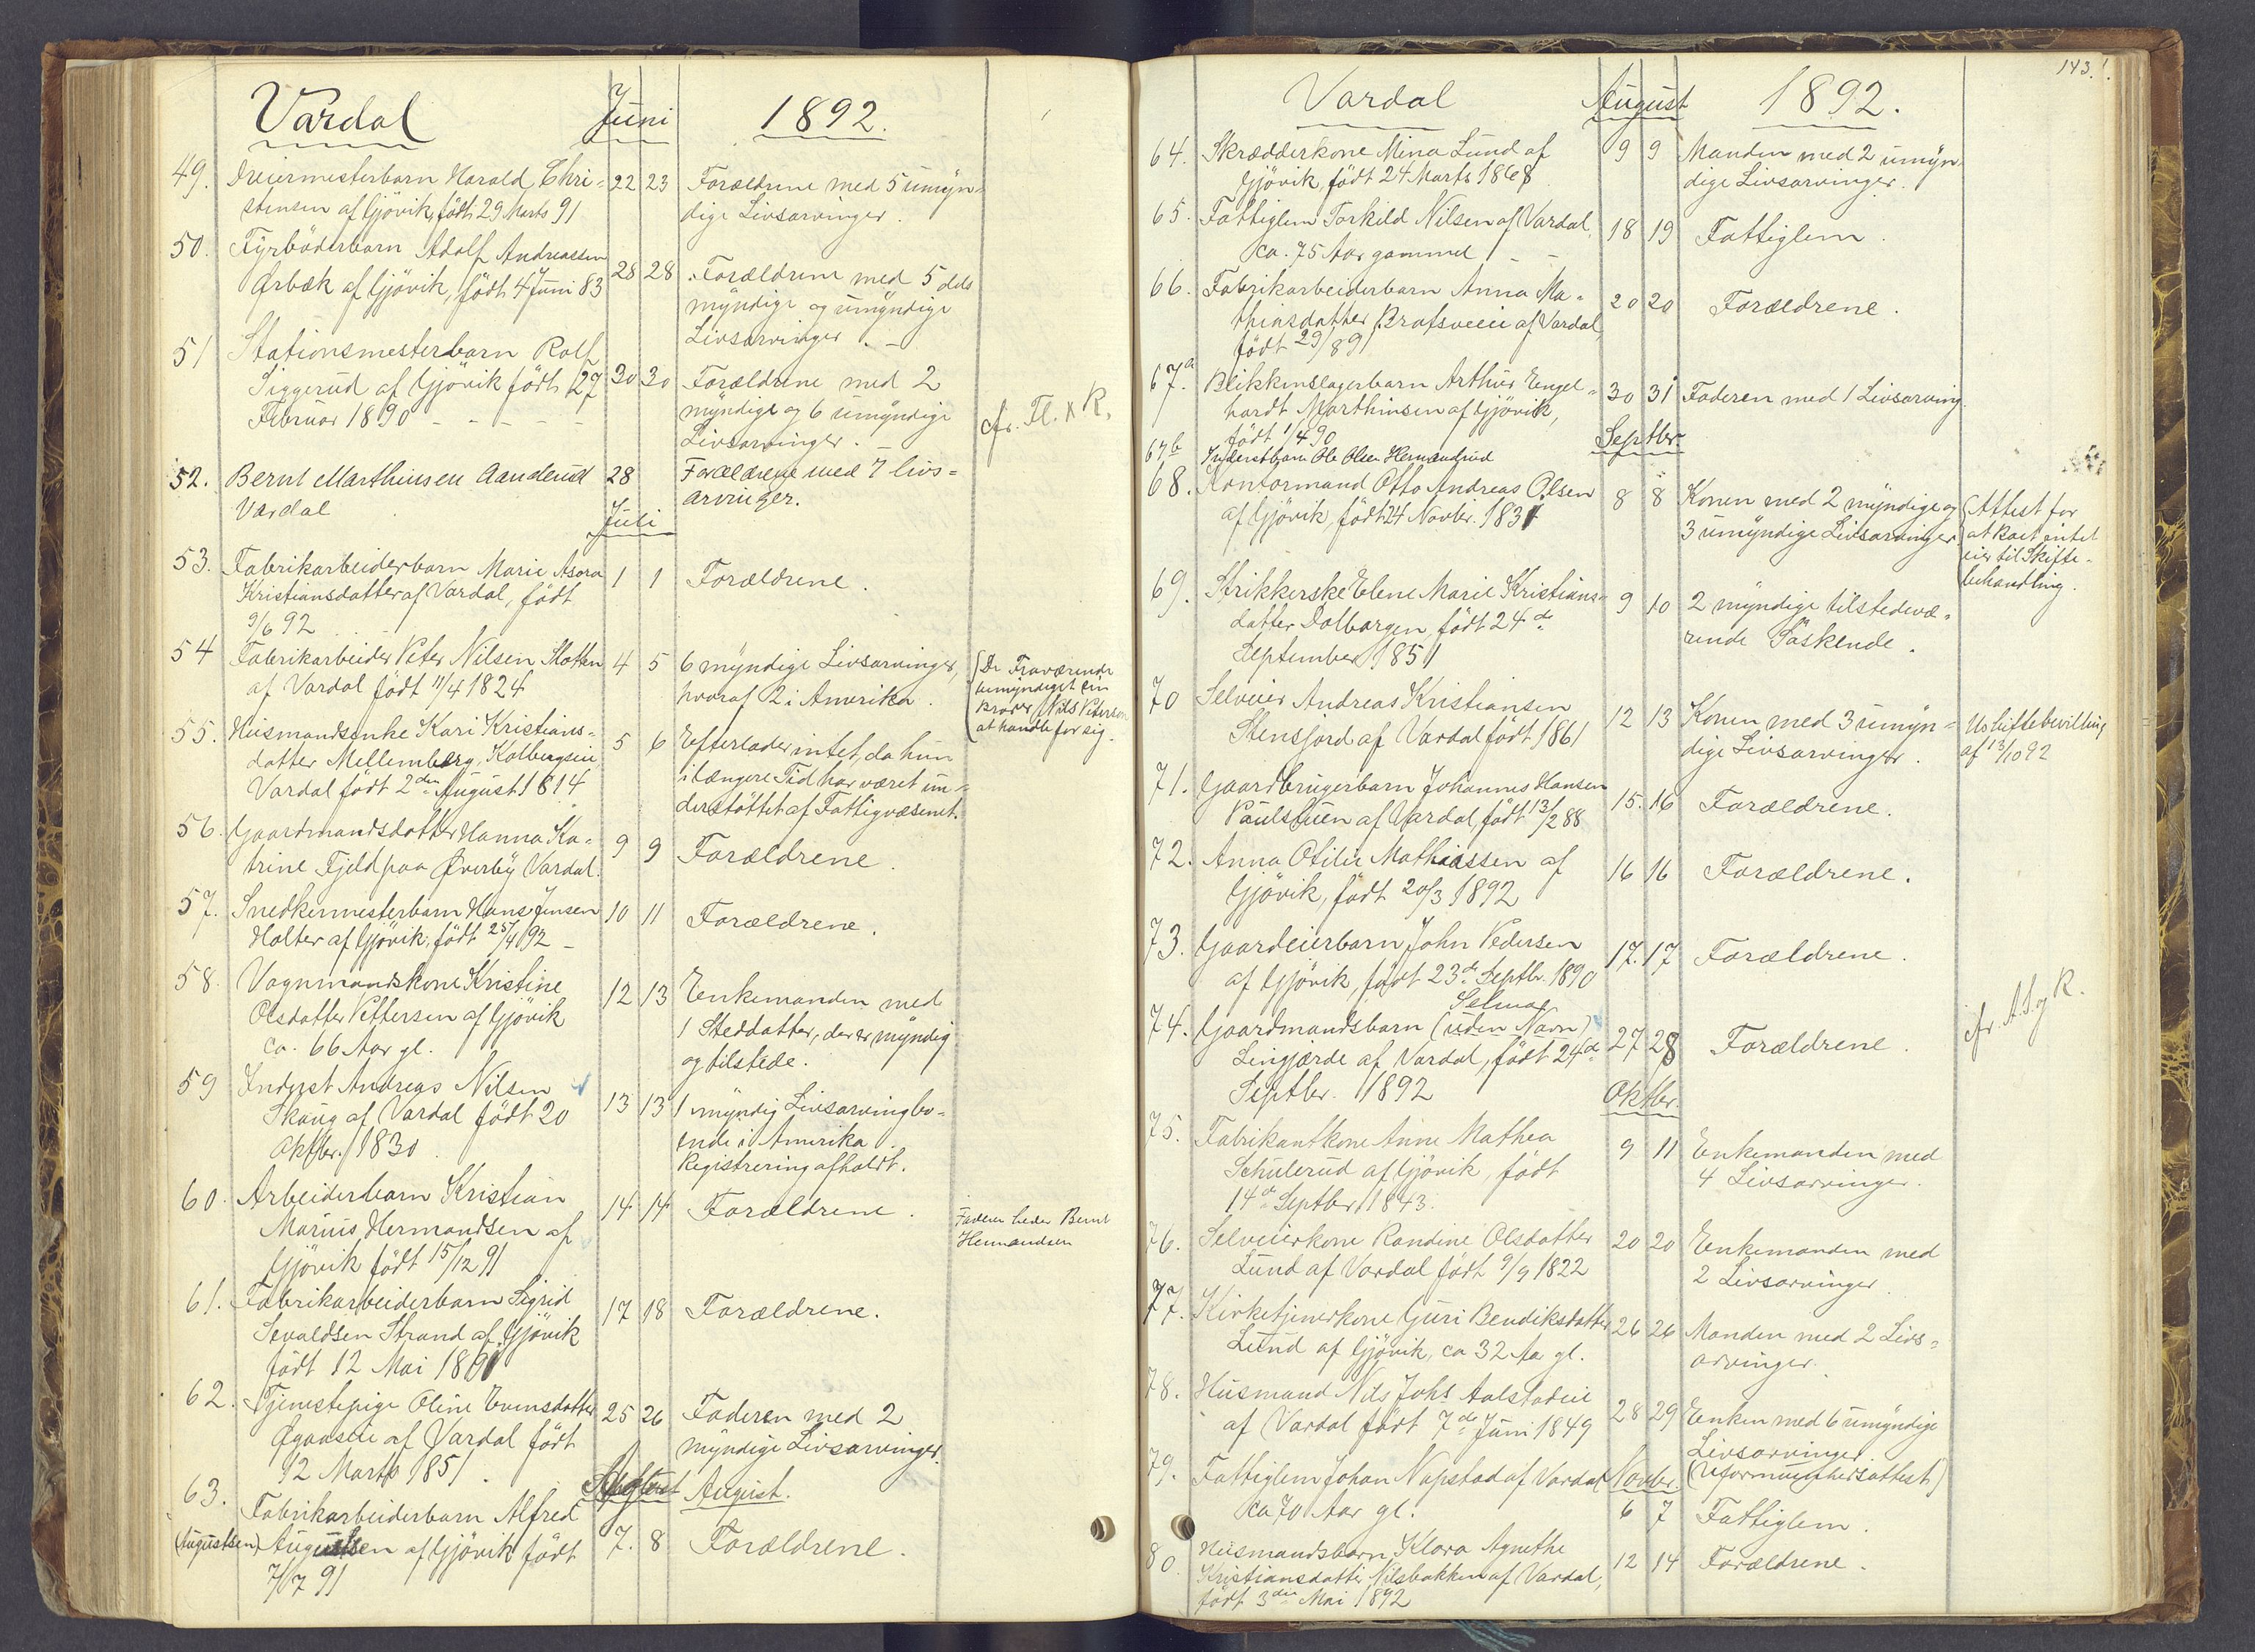 Vardal Juni 1892.
49. Dreiermesterbarn Harald Chri- 22 23 Forældrene med 5 umyn-
stensen af Gjövik, födt 29 Marts 91 dige Livsarvinger.
50. Fyrböderbarn Adolf Andreassen
Ørbæk af Gjövik, födt 4 Juni 83 28 28 Forældrene med 5 dels
myndige og umyndige
Livsarvinger.
51 Stationsmesterbarn Rolf
Siggerud af Gjövik födt 27 30 30 Forældrene med 2
Februar 1890 - - - - - myndige og 6 umyndige cfr. Fl. K.
Livsarvinger.
52. Bernt Marthinsen Aanderud 28 Forældrene med 7 livs-
Vardal arvinger.
Juli
53. Fabrikarbeiderbarn Marie Asora 1 1 Forældrene.
Kristiansdatter af Vardal, födt
9/6 92
54 Fabrikarbeider Peter Nilsen Sletten 4 5 6 myndige Livsarvinger, De Fraværende
af Vardal födt 11/4 1824 hvoraf 2 i Amerika. bemyndiget sin
Broder Nils Petersen
at handle for sig.
55. Husmandsenke Kari Kristians- 5 6 Efterlader intet, da hun
datter Mellemberg, Kolbergseie, i længere Tid har været un-
Vardal födt 2den August 1814 derstöttet af Fattigvæsenet.
56. Gaardmandsdatter Hanna Ka- 9 9 Forældrene
trine Fjeld paa Øverby Vardal.
57. Snedkermesterbarn Hans Jensen 10 11 Forældrene.
Holter af Gjövik, födt 25/4 92 -
58. Vognmandskone Kristine 12 13 Enkemanden med
Olsdatter Pettersen af Gjövik 1 Steddatter, der er myndig
ca. 66 Aar gl. og tilstede.
59 Inderst Andreas Nilsen
Skaug af Vardal födt 20 13 13 1 myndig Livsarving bo-
Oktbr. 1830. ende i Amerika.
Registrering afholdt.
60. Arbeiderbarn Kristian 14 14 Forældrene. Faderen heder Bernt
Marius Hermandsen af Hermandsen
Gjövik födt 15/12 91
61. Fabrikarbeiderbarn Sigrid 17 18 Forældrene.
Sevaldsen Strand af Gjövik
födt 12 Mai 1891
62. Tjenestepige Oline Evensdatter 25 26 Faderen med 2
af Vardal födt myndige Livsarvinger.
12 Marts 1851.
August.
63. Fabrikarbeiderbarn Alfred
(Augustsen) Augustsen af Gjövik födt 7. 8 Forældrene.
7/7 91
143.
Vardal August 1892.
64. Skrædderkone Mina Lund af 9 9 Manden med 2 umyn-
Gjövik, födt 24 Marts 1868 dige Livsarvinger.
65. Fattiglem Torkild Nilsen af Vardal, 18 19 Fattiglem.
ca. 75 Aar gammel - -
66. Fabrikarbeiderbarn Anna Ma- 20 20 Forældrene.
thiasdatter Bratsveeie af Vardal,
födt 29/8 91
67.a Blikkenslagerbarn Arthur Engel- 30 31 Faderen med 1 Livsarving.
hardt Marthinsen af Gjövik,
födt 1/4 90 Septbr.
67b Inderstbarn Ole Olsen Hermandrud
68. Kontormand Otto Andreas Olsen 8 8 Konen med 2 myndige og Attest for
af Gjövik, födt 24 Novbr. 1831 3 umyndige Livsarvinger at Boet intet
eier til Skifte-
behandling.
69. Strikkerske Elene Marie Kristians- 9 10 2 myndige tilstedevæ-
datter Dalborgen, födt 24de rende Söskende.
September 1851
70 Selveier Andreas Kristiansen 12 13 Konen med 3 umyn- Uskiftebevilling
Stensjord af Vardal födt 1861 dige Livsarvinger. af 13/10 92
71. Gaardbrugerbarn Johannes Hansen 15. 16 Forældrene.
Paulstuen af Vardal, födt 13/2 88
72. Anna Otilie Mathiassen af 16 16 Forældrene.
Gjövik, födt 20/3 1892
73. Gaardeierbarn John Pedersen 17. 17 Forældrene.
af Gjövik, födt 23de Septbr. 1890
Selmar
74. Gaardmandsbarn (uden Navn) 27 28 Forældrene.
Lingjærde af Vardal, födt 24de
Septbr. 1892 Oktbr.
75. Fabrikantkone Anne Mathea 9 11 Enkemanden med
Schulerud af Gjövik, födt 4 Livsarvinger.
14de Septbr 1843.
76. Selveierkone Randine Olsdatter 20 20 Enkemanden med
Lund af Vardal födt 9/9 1822 2 Livsarvinger.
77. Kirketjenerkone Guri Bendiksdatter 26 26 Manden med 2 Livs-
Lund af Gjövik, ca 32 Aa gl. arvinger.
78. Husmand Nils Johs. Aalstadeie 28 29 Enken med 6 umyndige
af Vardal födt 7de Juni 1849 Livsarvinger
(Uformuenhedsattest)
79. Fattiglem Johan Napstad af Vardal Novbr.
ca 70 Aar gl. 6 7 Fattiglem.
80. Husmandsbarn Klara Agnethe 12 14 Forældrene.
Kristiansdatter Nilsbakken af Vardal,
födt 3den Mai 1892